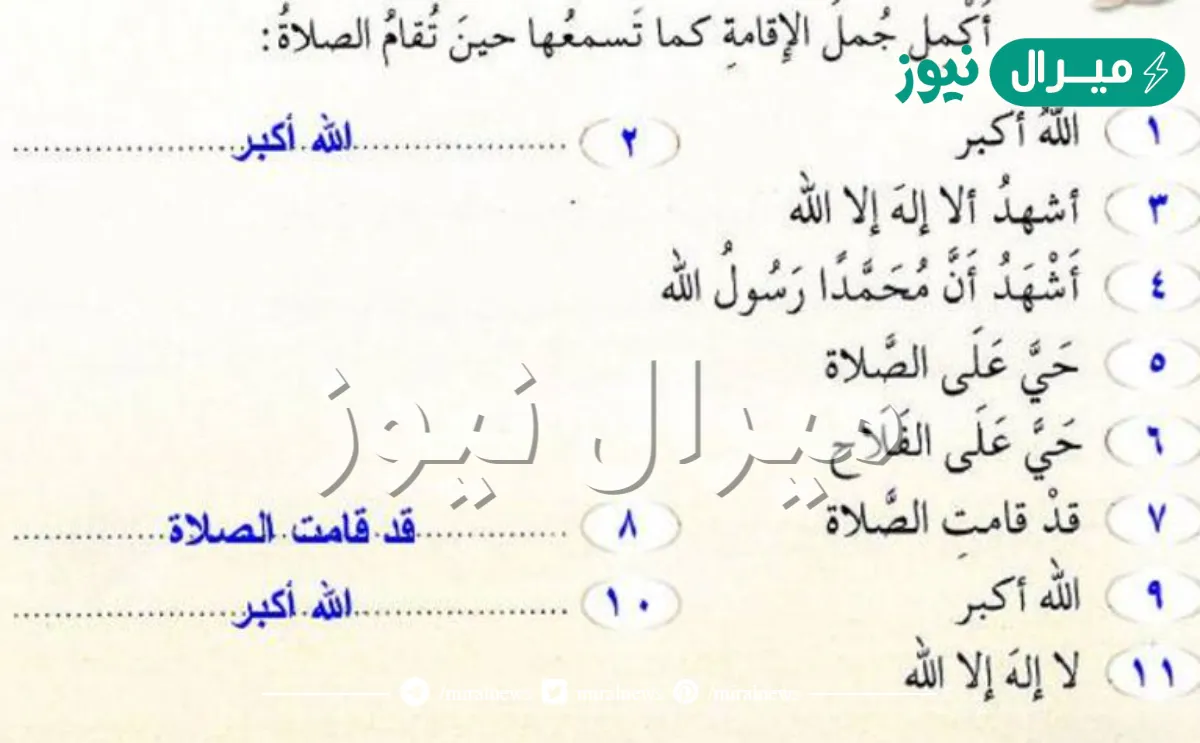 أَكْمل جُملَ الإقامةِ كما تَسمعُها حينَ تُقامُ الصلاةُ:
ميرال نيوز
١ اللَّهُ أكبر ٢ الله أكبر
٣ أشهدُ ألا إلهَ إلا الله
٤ أَشْهَدُ أَنَّ مُحَمَّدًا رَسُولُ الله
٥ حَيَّ عَلَى الصَّلاة
٦ حَيَّ عَلَى الفَلَاح
ميرال نيوز
٧ قدْ قامتِ الصَّلاة ٨ قد قامت الصلاة
٩ الله أكبر ١٠ الله أكبر
١١ لا إلهَ إلا الله